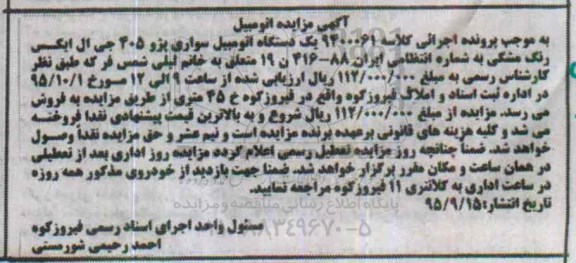 آگهی مزایده اتومبیل
به موجب پرونده اجرائی کلاسه ۹۳۰۰۰۶۱ یک دستگاه اتومبیل سواری پژو ۴۰۵ جی ال ایکس
رنگ مشکی به شماره انتظامی ایران ۸۸-۲۱۶ ن ۱۹ متعلق به خانم لیلی شمس فر که طبق نظر
کارشناس رسمی به مبلغ ۱۱۲/۰۰۰/۰۰۰ ریال ارزیابی شده از ساعت ۹ الی ۱۲ مورخ ۹۵/۱۰/۱
در اداره ثبت اسناد و املاک فیروزکوه واقع در فیروزکوه خ ۴۵ متری از طریق مزایده به فروش
می رسد. مزایده از مبلغ ۱۱۲/۰۰۰/۰۰۰ ریال شروع و به بالاترین قیمت پیشنهادی نقدا فروخته
می شد و کلیه هزینه های قانونی برعهده برنده مزایده است و نیم عشر و حق مزایده نقداً وصول
خواهد شد. ضمناً چنانچه روز مزایده تعطیل رسمی اعلام گردد مزایده روز اداری بعد از تعطیلی
در همان ساعت و مکان مقرر برگزار خواهد شد. ضمنا جهت بازدید از خودروی مذکور همه روزه
در ساعت اداری به کلانتری ۱۱ فیروزکوه مراجعه نمایید.
تاریخ انتشار: ۹۵/۹/۱۵
پایگاه اطلاع رسانی مناقصه و مزایده
مسئول واحد اجرای اسناد رسمی فیروزکوه
۸۸۳۴۹۶۷۰-۵
احمد رحیمی شورمستی